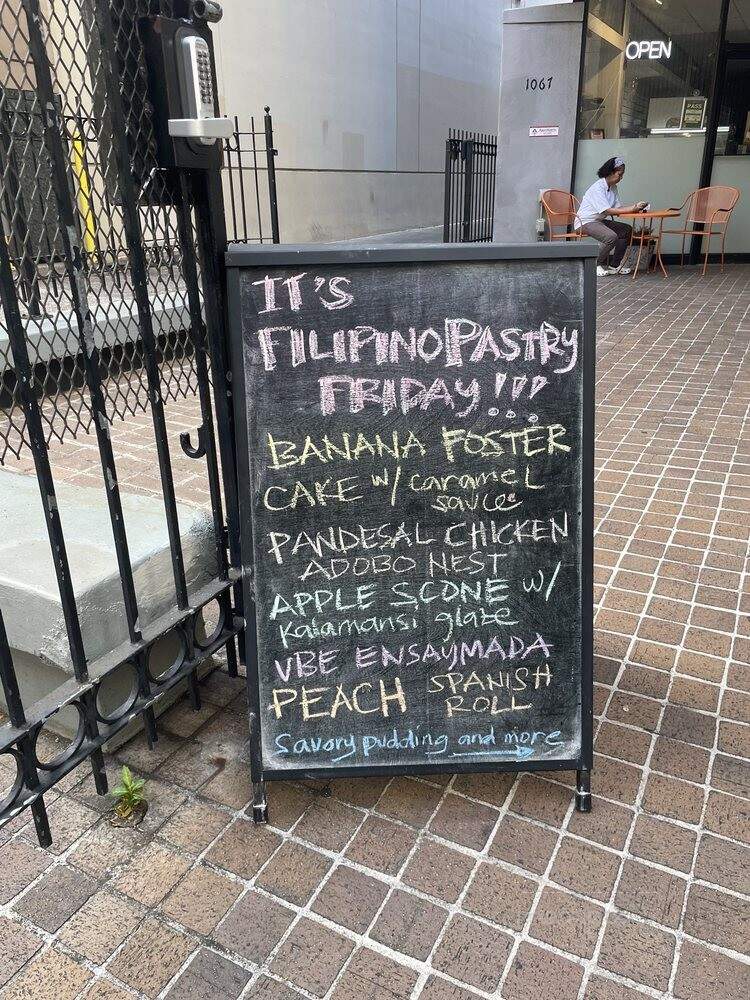 OPEN
1067
PASS
IT'S
FILIPINO PASTRY
FRIDAY!!!
BANANA FOSTER
CAKE w/ caramel
sauce
PANDESAL CHICKEN
ADOBO NEST
APPLE SCONE w/
Kalamansi glaze
UBE ENSAYMADA
PEACH SPANISH
ROLL
Savory pudding and more